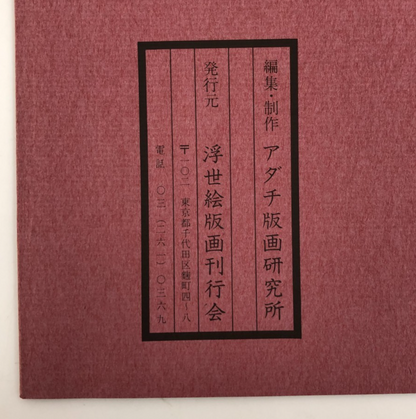 編集・制作 アダチ版画研究所
発行元 浮世絵版画刊行会
〒一〇二 東京都千代田区麹町四ー八
電話 〇三（二六一）〇三六九